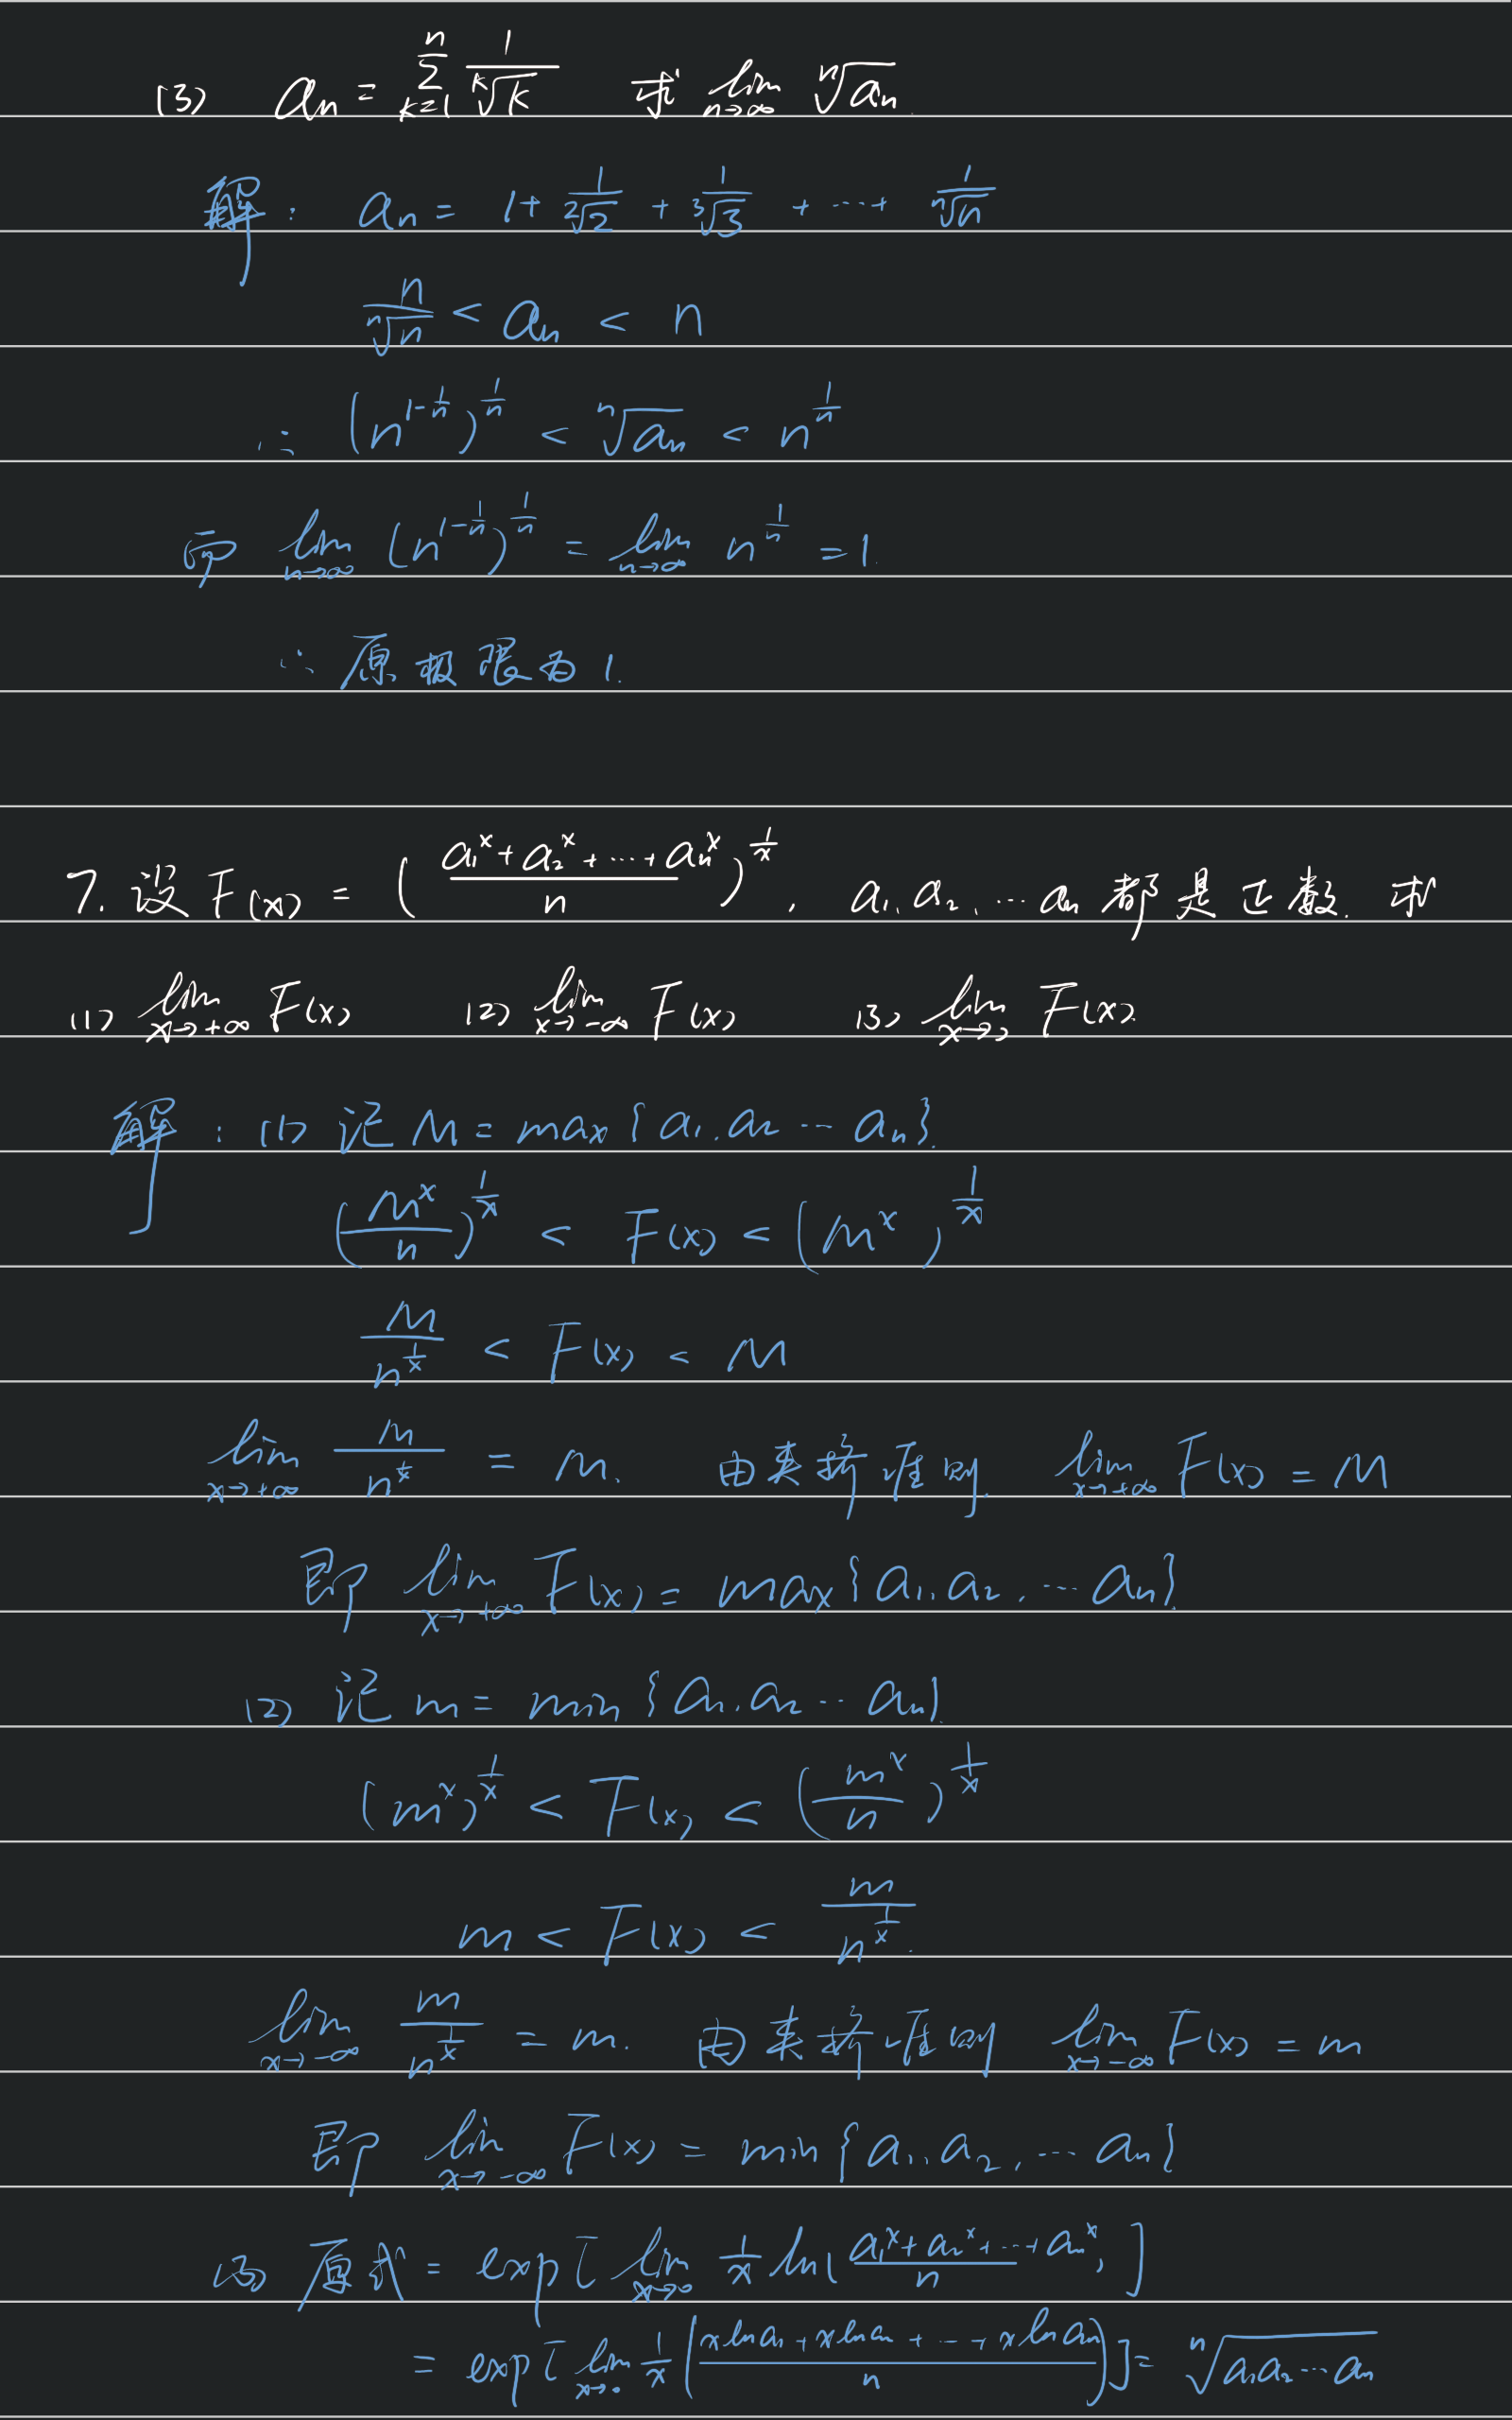 (3) aₙ = ∑_{k=1}^{n} 1/ᵏ√k 求 lim_{n→∞} ⁿ√aₙ.
解: aₙ = 1 + 1/²√2 + 1/³√3 + ··· + 1/ⁿ√n
n/ⁿ√n < aₙ < n
∴ (n^{1-1/n})^{1/n} < ⁿ√aₙ < n^{1/n}
而 lim_{n→∞} (n^{1-1/n})^{1/n} = lim_{n→∞} n^{1/n} = 1.
∴ 原极限为1.
7. 设 F(x) = ((a₁ˣ + a₂ˣ + ··· + aₙˣ)/n)^{1/x}, a₁, a₂, ··· aₙ 都是正数. 求
(1) lim_{x→+∞} F(x) (2) lim_{x→-∞} F(x) (3) lim_{x→0} F(x).
解: (1) 记 M = max{a₁, a₂ ··· aₙ}.
(Mˣ/n)^{1/x} < F(x) < (Mˣ)^{1/x}
M/n^{1/x} < F(x) < M
lim_{x→+∞} M/n^{1/x} = M. 由夹挤准则. lim_{x→+∞} F(x) = M
即 lim_{x→+∞} F(x) = max{a₁, a₂, ··· aₙ}
(2) 记 m = min{a₁, a₂ ··· aₙ}.
(mˣ)^{1/x} < F(x) < (mˣ/n)^{1/x}
m < F(x) < m/n^{1/x}.
lim_{x→-∞} m/n^{1/x} = m. 由夹挤准则 lim_{x→-∞} F(x) = m
即 lim_{x→-∞} F(x) = min{a₁, a₂, ··· aₙ}
(3) 原式 = exp[lim_{x→0} 1/x ln((a₁ˣ + a₂ˣ + ··· + aₙˣ)/n)]
= exp[lim_{x→0} 1/x ((x ln a₁ + x ln a₂ + ··· + x ln aₙ)/n)] = ⁿ√(a₁a₂···aₙ)